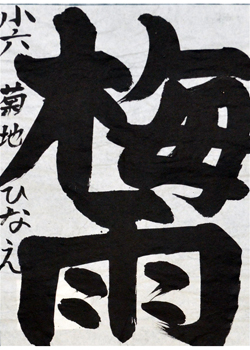 梅雨
小六 菊地 ひなえ